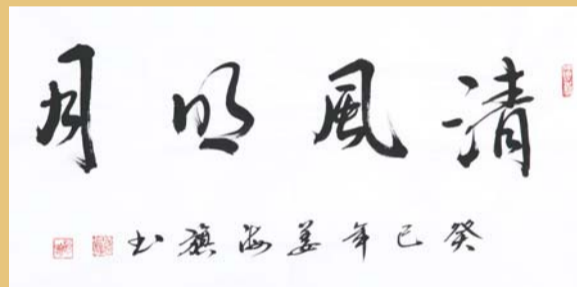 清風明月
癸巳年姜海旗书